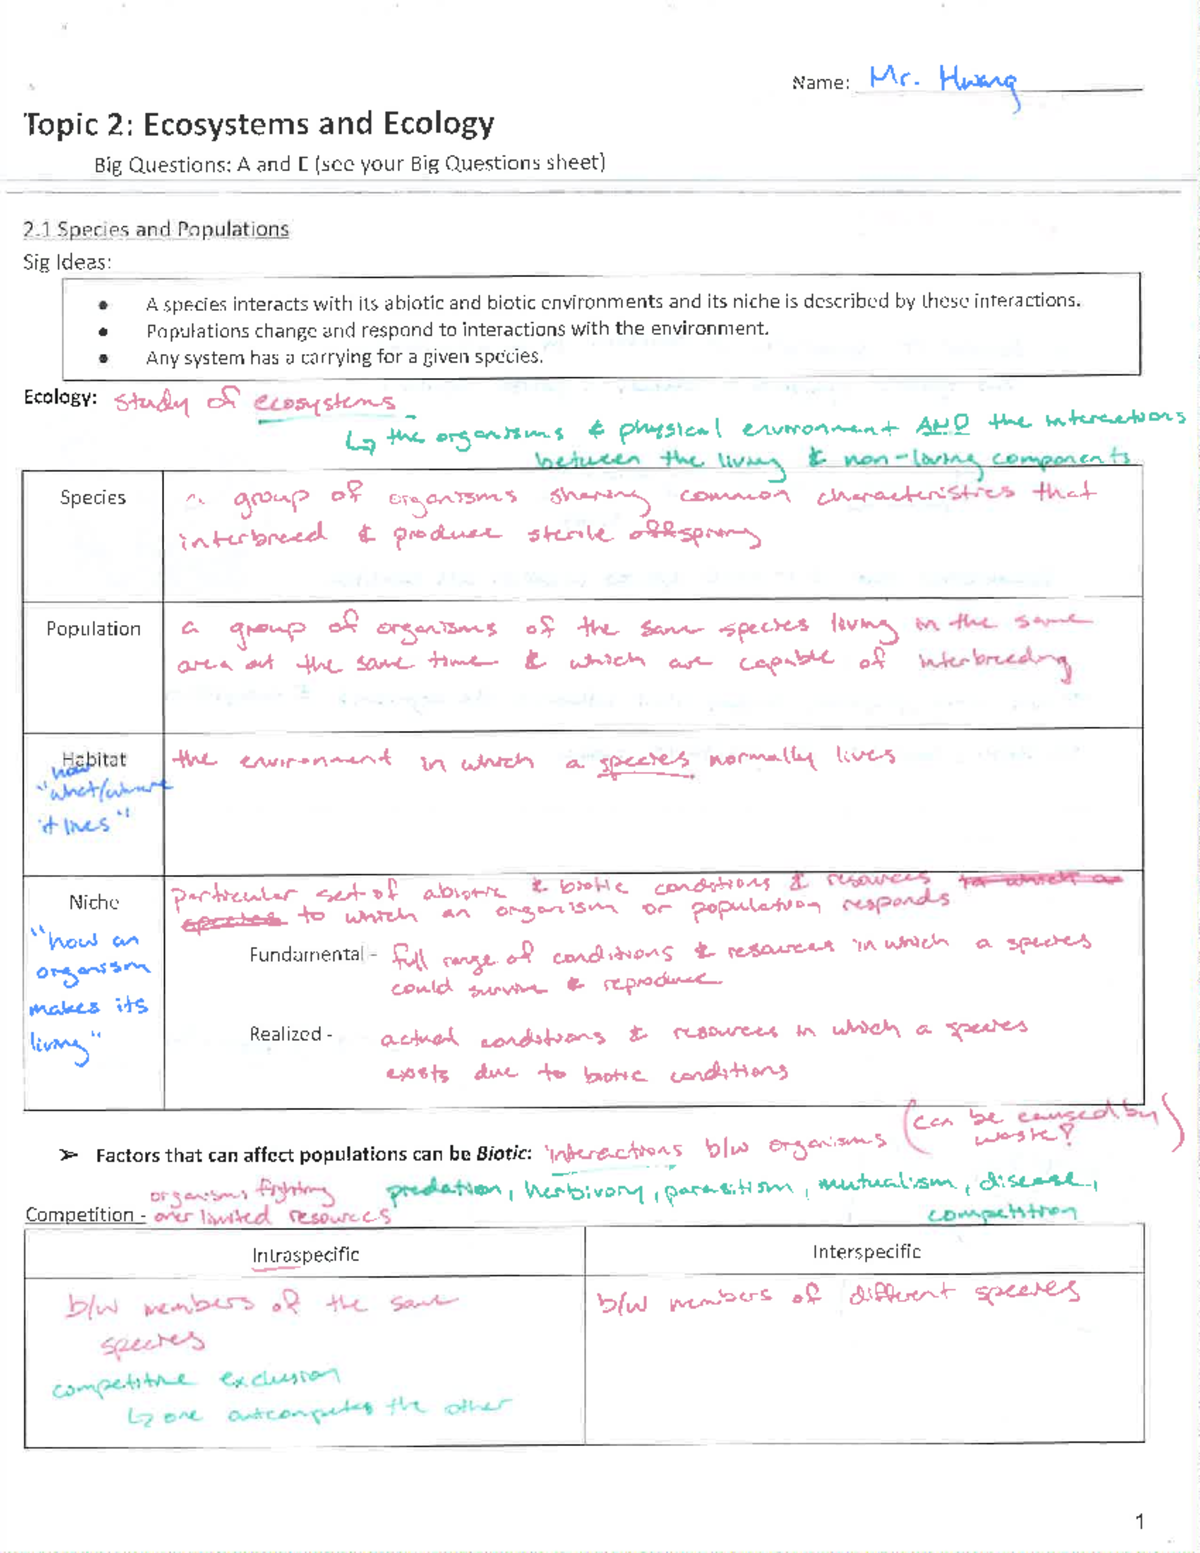 Name: Mr. Hwang
Topic 2: Ecosystems and Ecology
Big Questions: A and E (see your Big Questions sheet)
2.1 Species and Populations
Sig Ideas:
• A species interacts with its abiotic and biotic environments and its niche is described by these interactions.
• Populations change and respond to interactions with the environment.
• Any system has a carrying for a given species.
Ecology: study of ecosystems
↳ the organisms & physical environment AND the interactions
between the living & non-living components
Species
a group of organisms sharing common characteristics that
interbreed & produce sterile offspring
Population
a group of organisms of the same species living in the same
area at the same time & which are capable of interbreeding
Habitat
how
"what/where
it lives"
the environment in which a species normally lives
Niche
"how an
organism
makes its
living"
particular set of abiotic & biotic conditions & resources to which a
species to which an organism or population responds
Fundamental - full range of conditions & resources in which a species
could survive & reproduce
Realized - actual conditions & resources in which a species
exists due to biotic conditions
➢ Factors that can affect populations can be Biotic: interactions b/w organisms (can be caused by
waste?)
predation, herbivory, parasitism, mutualism, disease,
competition
Competition - organisms fighting
over limited resources
Intraspecific
Interspecific
b/w members of the same
species
competitive exclusion
↳ one outcompetes the other
b/w members of different species
1